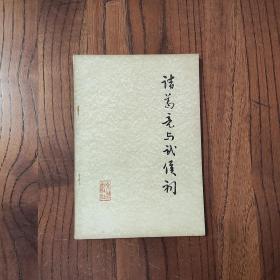 诸葛亮与武侯祠